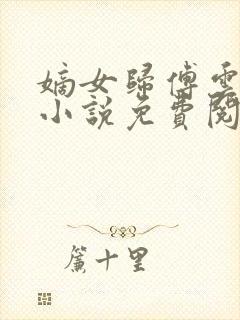 嫡女歸傅雲
小說免費閱
簾十里